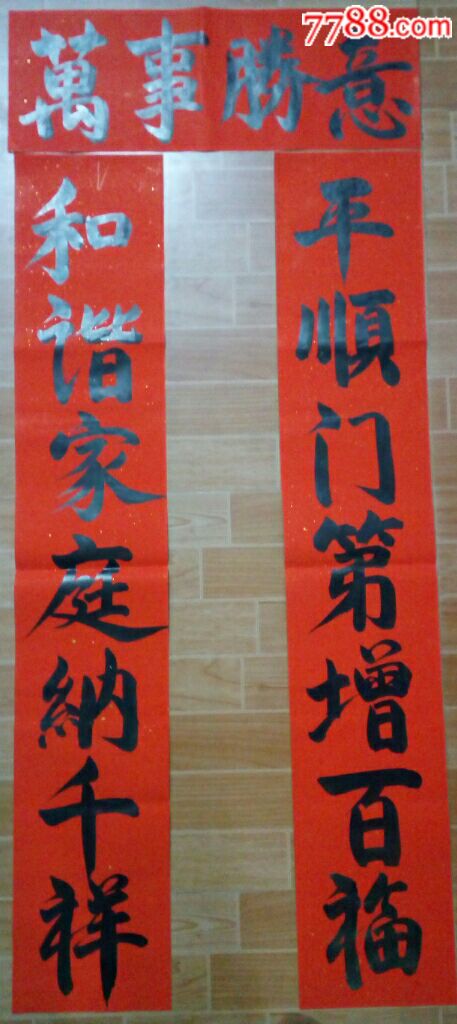 7788.com
萬事勝意
和谐家庭納千祥
平順门第增百福